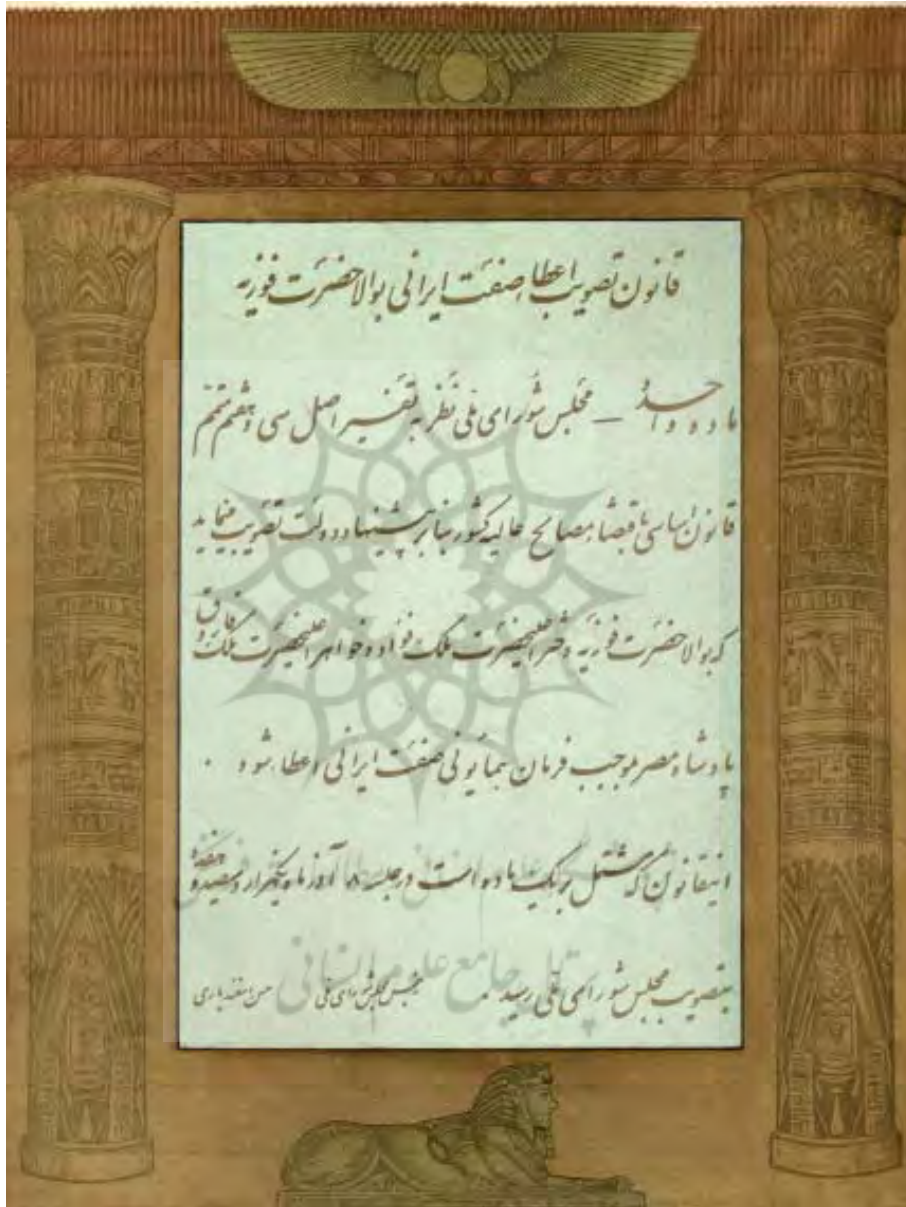 قانون تصویب اعطاء صفت ایرانی بوالاحضرت فوزیه
ماده واحده – مجلس شورای ملی نظر به تفسیر اصل سی و هفتم متمم
قانون اساسی باقتضاء مصالح عالیه کشور بنا بر پیشنهاد دولت تصویب مینماید
که بوالاحضرت فوزیه دختر اعلیحضرت ملک فؤاد و خواهر اعلیحضرت ملک فاروق
پادشاه مصر بموجب فرمان همایونی صفت ایرانی اعطاء شود .
اینقانون که مشتمل بر یک ماده است در جلسه آذر ماه یکهزار و سیصد و هفده
بتصویب مجلس شورای ملی رسید . رئیس مجلس شورای ملی حسن اسفندیاری
پرتال جامع علوم انسانی